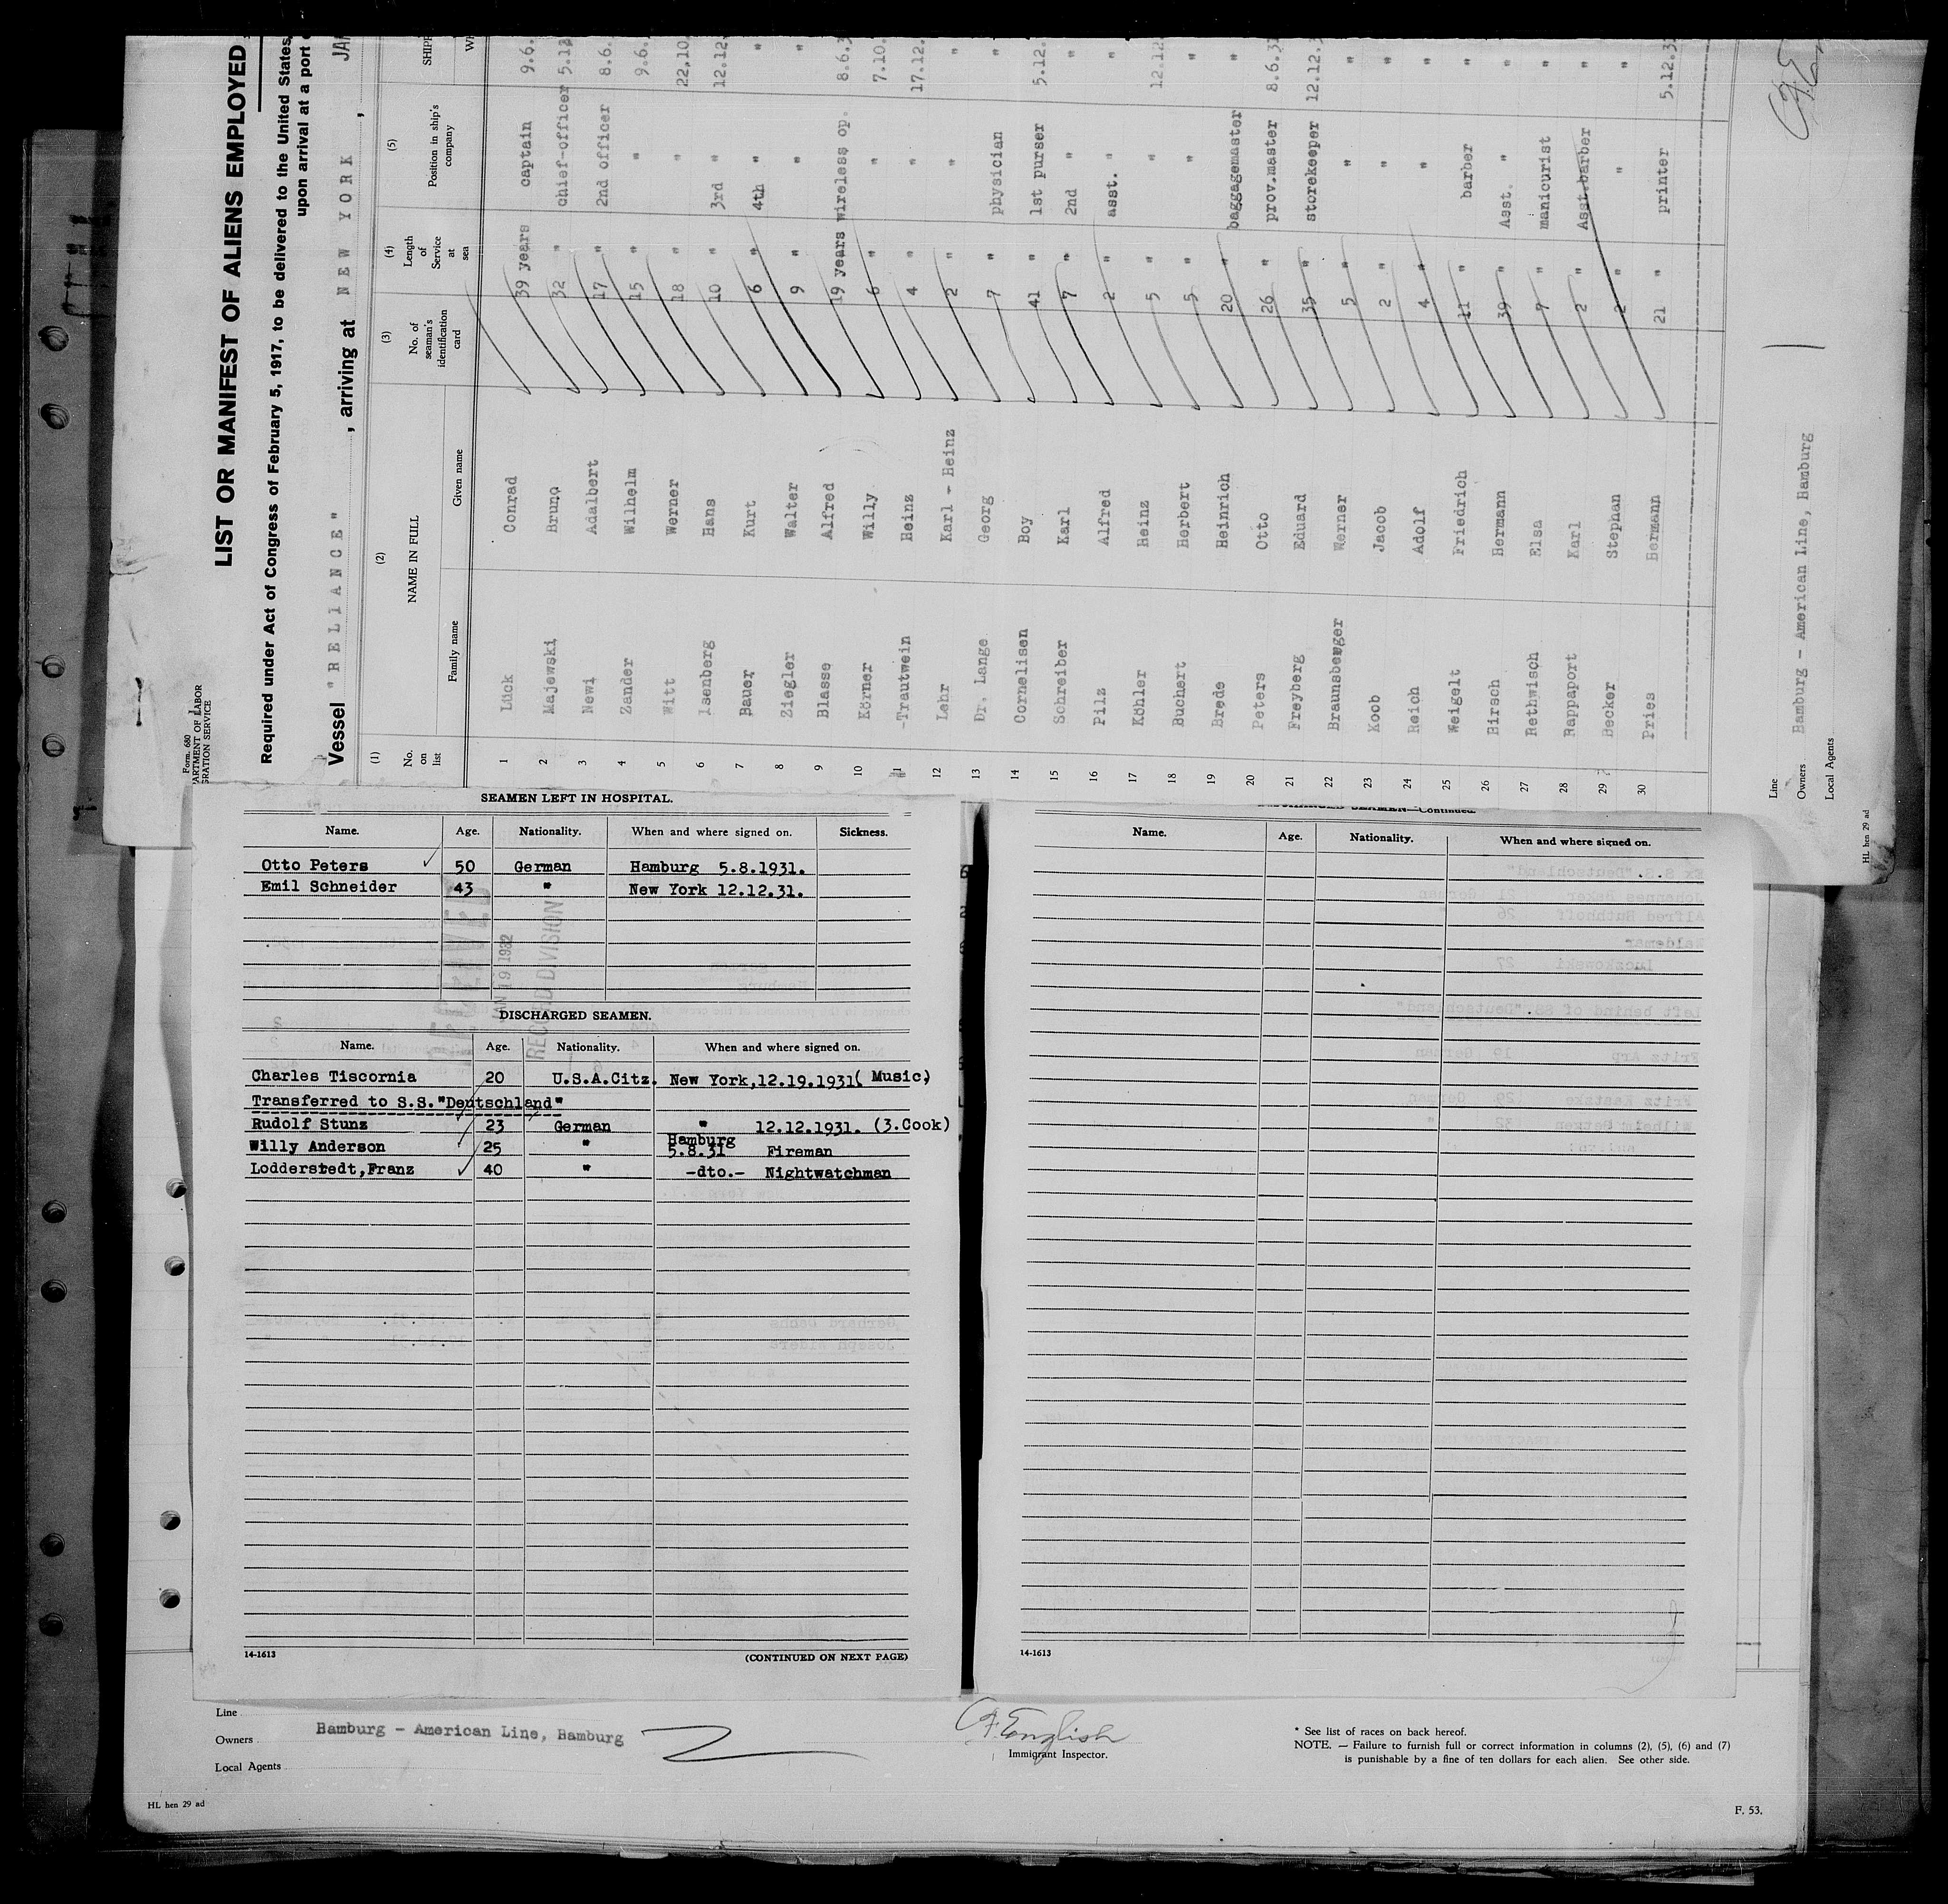 Form 680
DEPARTMENT OF LABOR
IMMIGRATION SERVICE
LIST OR MANIFEST OF ALIENS EMPLOYED
Required under Act of Congress of February 5, 1917, to be delivered to the United States
upon arrival at a port
Vessel "RELIANCE", arriving at NEW YORK, JAN
(1) (2) (3) (4) (5)
No. on list NAME IN FULL No. of seaman's identification card Length of Service at sea Position in ship's company SHIPPE
Family name Given name
1 Lück Conrad 39 years captain 9.6.
2 Majewski Bruno 32 " chief-officer 5.12
3 Newi Adalbert 17 " 2nd officer 8.6.
4 Zander Wilhelm 15 " " 9.6.
5 Witt Werner 18 " " 22.10
6 Isenberg Hans 10 " 3rd " 12.12
7 Bauer Kurt 6 " 4th " "
8 Ziegler Walter 9 " " "
9 Blasse Alfred 19 years wireless op. 8.6.3
10 Körner Willy 6 " " 7.10.
11 Trautwein Heinz 4 " " 17.12.
12 Lehr Karl - Heinz 2 " " "
13 Dr. Lange Georg 7 " physician "
14 Cornelisen Boy 41 " 1st purser 5.12.
15 Schreiber Karl 7 " 2nd " "
16 Pilz Alfred 2 " asst. " "
17 Köhler Heinz 5 " " 12.12
18 Buchert Herbert 5 " " "
19 Brede Heinrich 20 " baggagemaster "
20 Peters Otto 26 " prov.master 8.6.31
21 Freyberg Eduard 35 " storekeeper 12.12.3
22 Braunsberger Werner 5 " " "
23 Koob Jacob 2 " " "
24 Reich Adolf 4 " " "
25 Weigelt Friedrich 11 " barber "
26 Hirsch Hermann 39 " Asst. " "
27 Rethwisch Elsa 7 " manicurist "
28 Rappaport Karl 2 " Asst.barber "
29 Becker Stephan 2 " " "
30 Pries Hermann 21 " printer 5.12.31
Line
Owners Hamburg - American Line, Hamburg
Local Agents
HL hen 29 ad
SEAMEN LEFT IN HOSPITAL.
Name. Age. Nationality. When and where signed on. Sickness.
Otto Peters 50 German Hamburg 5.8.1931.
Emil Schneider 43 " New York 12.12.31.
JAN 19 1932
RECORD DIVISION
DISCHARGED SEAMEN.
Name. Age. Nationality. When and where signed on.
Charles Tiscornia 20 U.S.A.Citz. New York,12.19.1931( Music)
Transferred to S.S."Deutschland"
Rudolf Stunz 23 German " 12.12.1931. (3.Cook)
Willy Anderson 25 " Hamburg 5.8.31 Fireman
Lodderstedt,Franz 40 " -dto.- Nightwatchman
14-1613 (CONTINUED ON NEXT PAGE)
DISCHARGED SEAMEN—Continued.
Name. Age. Nationality. When and where signed on.
14-1613
Line
Owners Hamburg - American Line, Hamburg
Local Agents
English
Immigrant Inspector.
* See list of races on back hereof.
NOTE. — Failure to furnish full or correct information in columns (2), (5), (6) and (7)
is punishable by a fine of ten dollars for each alien. See other side.
HL hen 29 ad
F. 53.